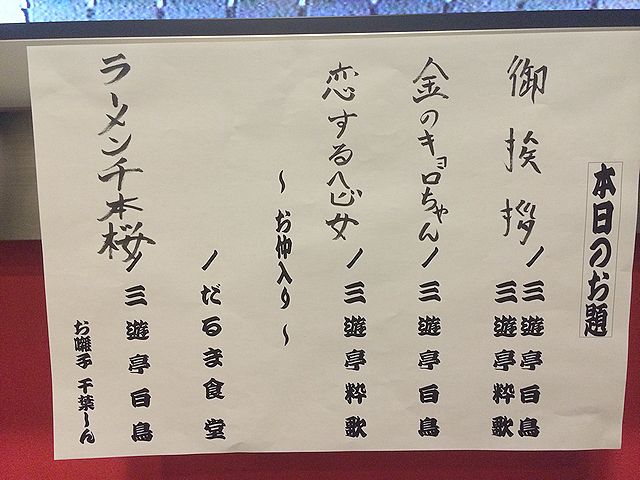 本日のお題
御挨拶/三遊亭白鳥
三遊亭粋歌
金のキョロちゃん/三遊亭白鳥
恋するヘビ女/三遊亭粋歌
~お仲入り~
/だるま食堂
ラーメン千本桜/三遊亭白鳥
お囃子 千葉しん